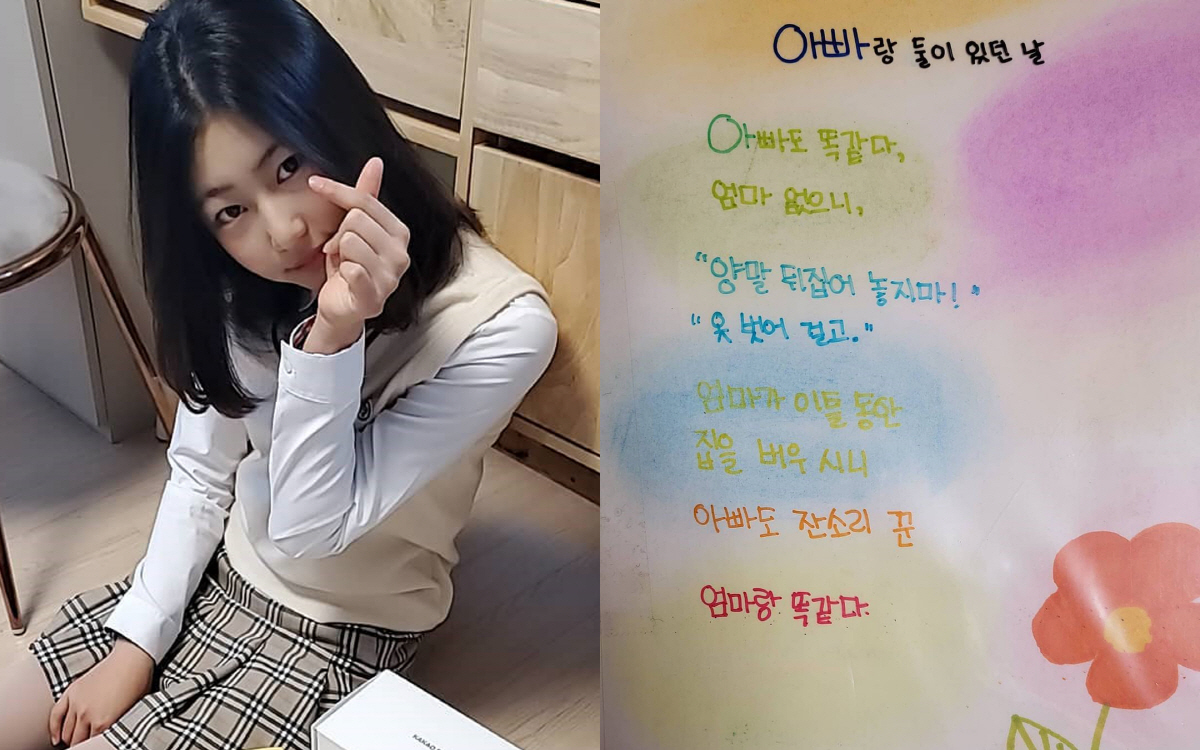 아빠랑 둘이 있던 날
아빠도 똑같다,
엄마 없으니,
"양말 뒤집어 놓지마!"
"옷 벗어 걸고."
엄마가 이틀 동안
집을 비우시니
아빠도 잔소리 꾼
엄마랑 똑같다.
KAKAO